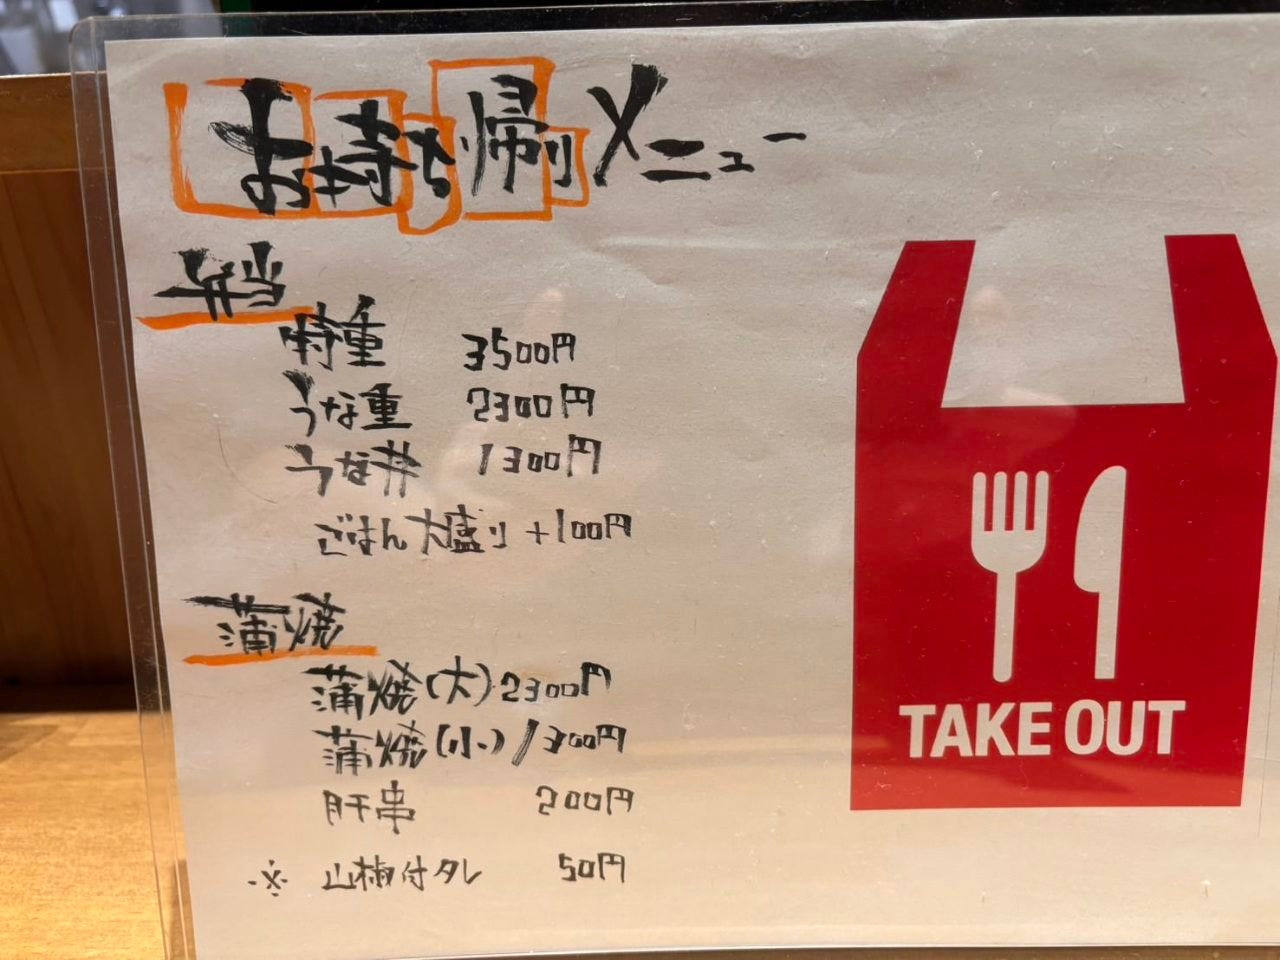 お持ち帰りメニュー
弁当
特重 3500円
うな重 2300円
うな丼 1300円
ごはん大盛り +100円
蒲焼
蒲焼(大) 2300円
蒲焼(小) 1300円
肝串 200円
※ 山椒付タレ 50円
TAKE OUT